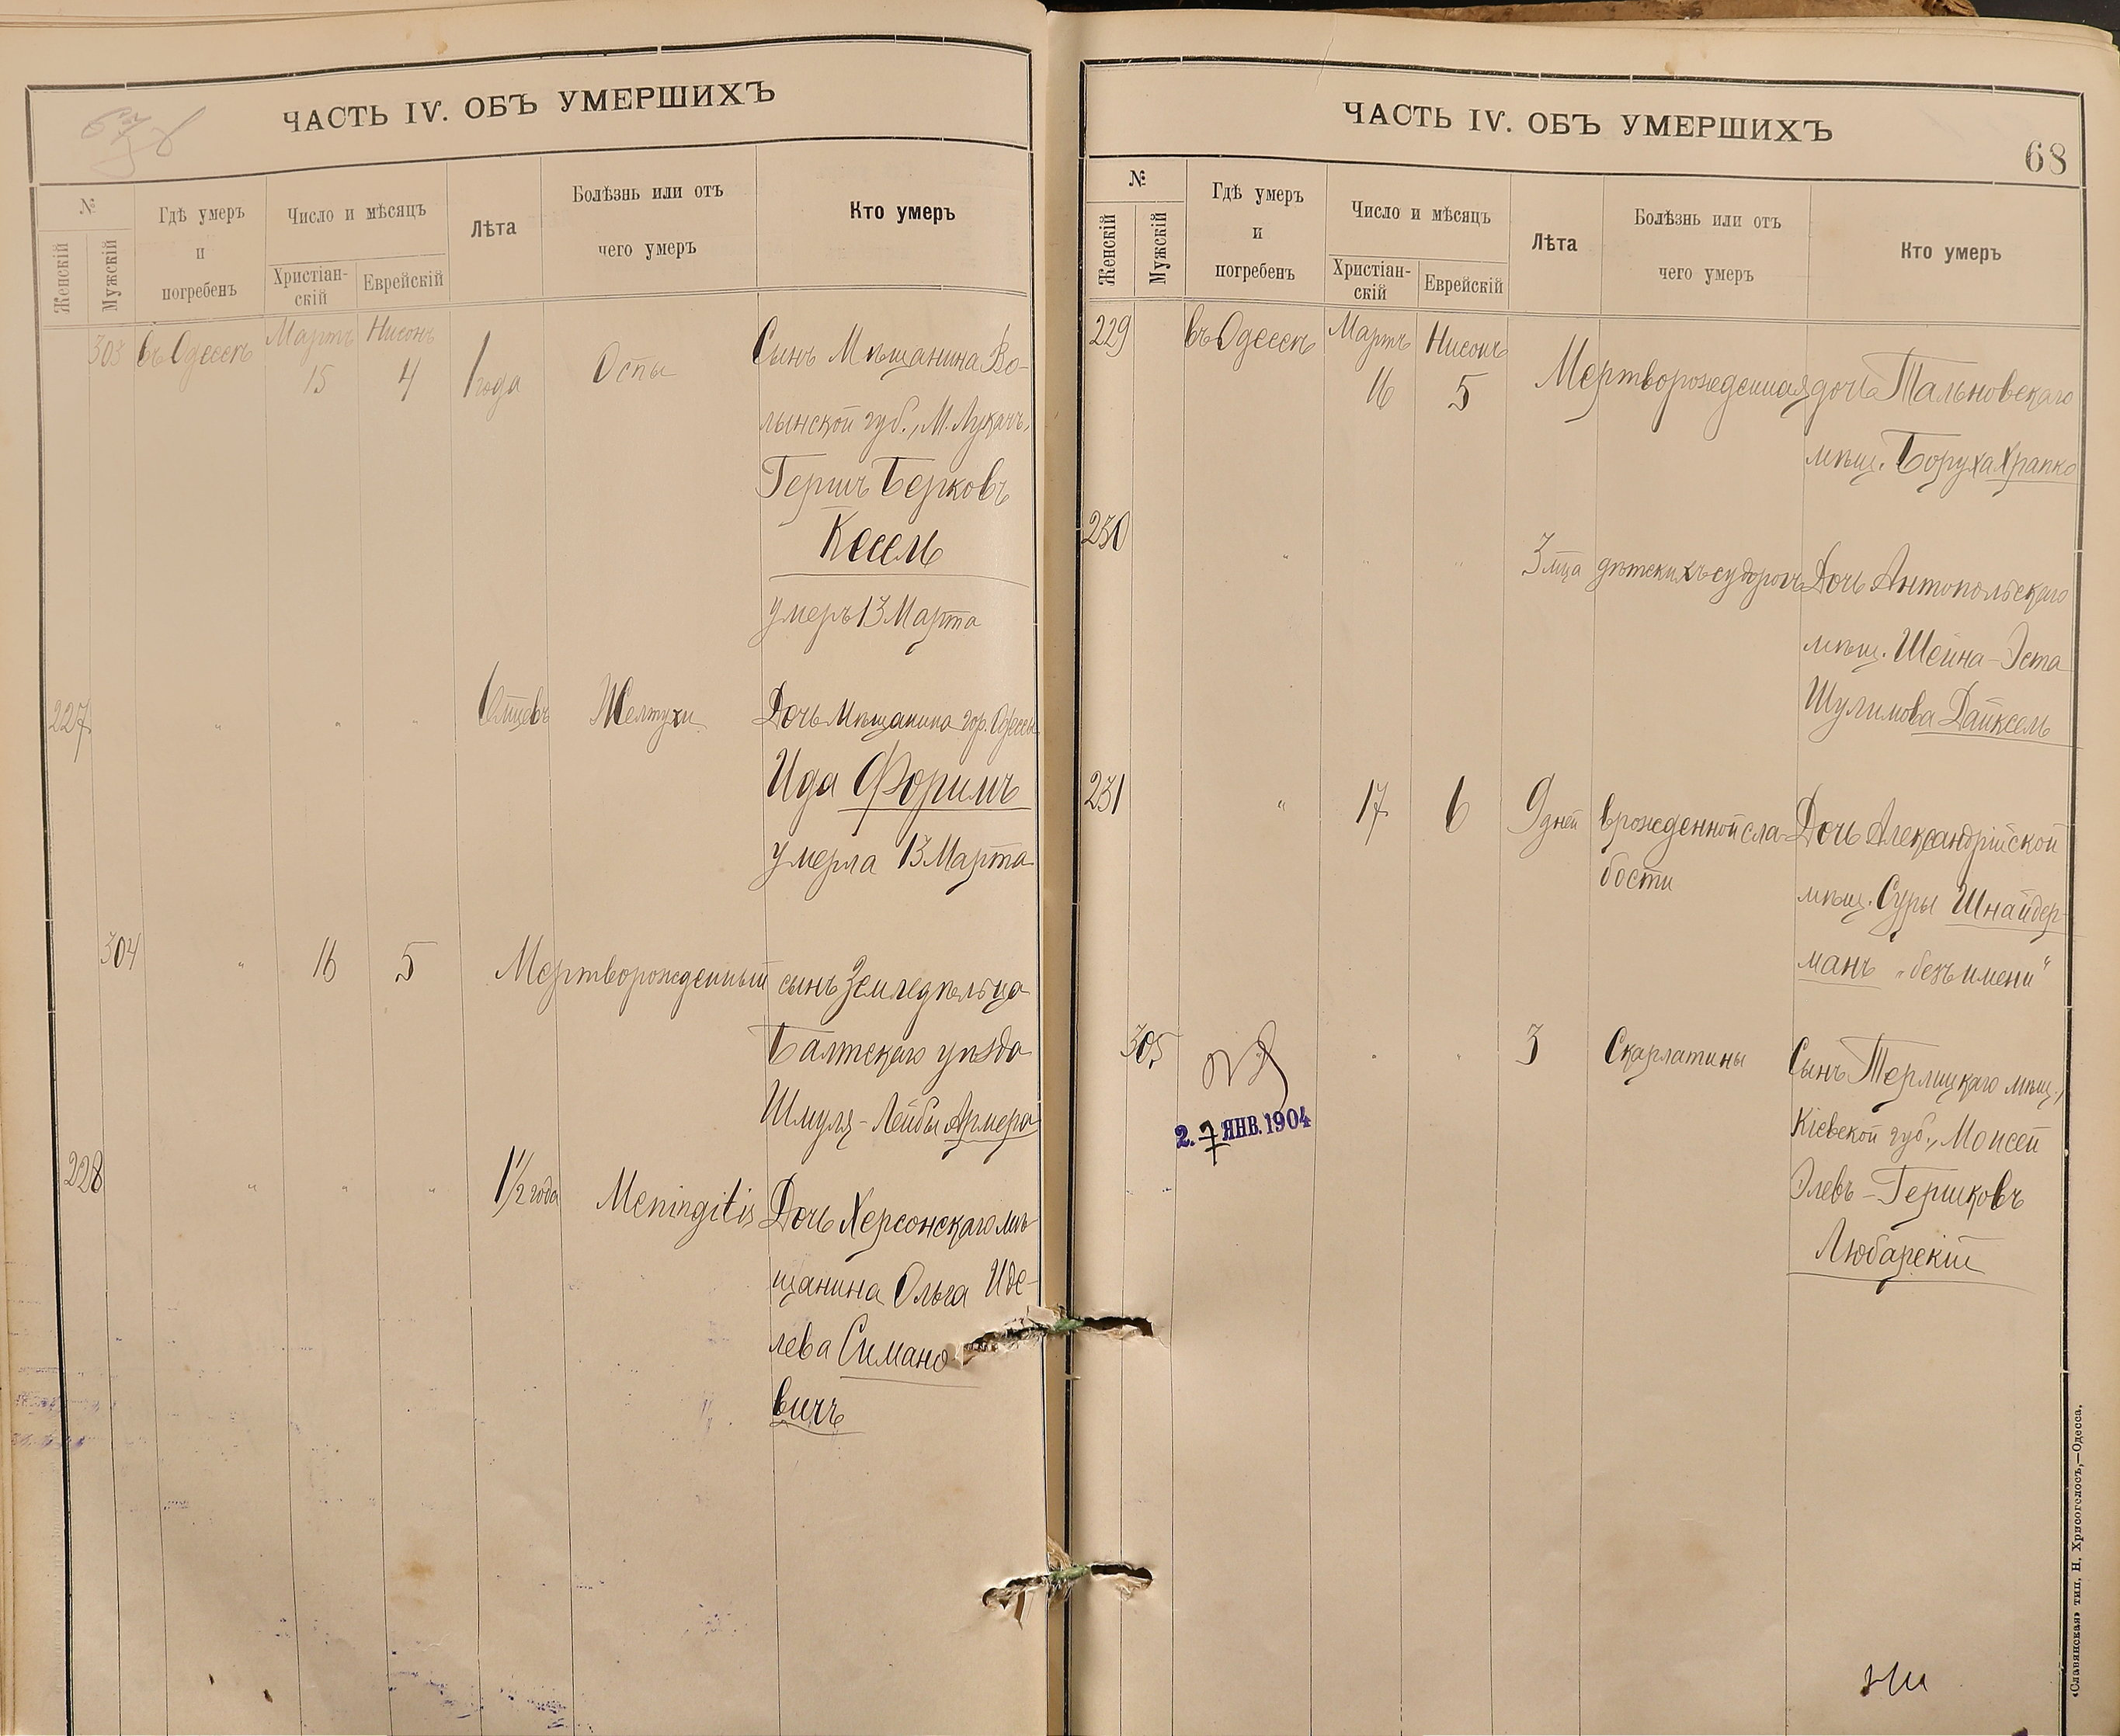 ЧАСТЬ IV. ОБЪ УМЕРШИХЪ
№
Женскій
Мужскій
Гдѣ умеръ
и
погребенъ
Число и мѣсяцъ
Христіан-
скій
Еврейскій
Лѣта
Болѣзнь или отъ
чего умеръ
Кто умеръ
303 въ Одессѣ Мартъ 15 Нисонъ 4 1 года Оспы Сынъ Мѣщанина Во-
лынской губ., М. Лукачъ,
Гершъ Берковъ
Кесель
умеръ 13 Марта
227 " " " Желтухи Дочь Мѣщанина гор. Одессы
Ида Форимъ
умерла 13 Марта
304 " 16 5 Мертворожденный сынъ Земледѣльца
Балтскаго уѣзда
Шмуля-Лейбы Армера
228 " " " 1 1/2 года Meningitis Дочь Херсонскаго мѣ-
щанина Ольга Иде-
лева Симано
вичъ
ЧАСТЬ IV. ОБЪ УМЕРШИХЪ
68
№
Женскій
Мужскій
Гдѣ умеръ
и
погребенъ
Число и мѣсяцъ
Христіан-
скій
Еврейскій
Лѣта
Болѣзнь или отъ
чего умеръ
Кто умеръ
229 въ Одессѣ Мартъ 16 Нисонъ 5 Мертворожденная дочь Тальновскаго
мѣщ. Боруха Храпко
230 " " " 3 мца дѣтскихъ судорогъ Дочь Антопольскаго
мѣщ. Шейна-Эста
Шулимова Дайксель
231 " 17 6 9 дней врожденной сла- Дочь Александрійской
бости мѣщ. Суры Шнайдер-
манъ „безъ имени"
305 " " 3 Скарлатины Сынъ Терлицкаго мѣщ.,
Кіевской губ., Моисей
Элевъ-Гершковъ
Любарскій
2. 7 ЯНВ. 1904
«Славянская» тип. Н. Хрисогелосъ,—Одесса.